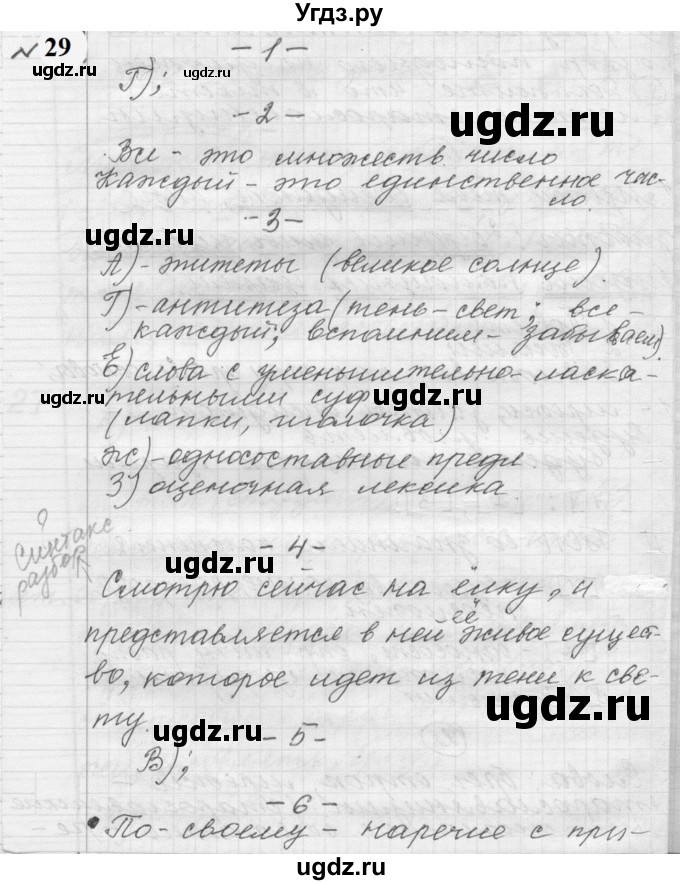 Угдз.ру
№ 29
- 1 -
Г);
- 2 -
Все - это множеств. число
Каждый - это единственное чис-
ло.
- 3 -
А) - эпитеты (великое солнце).
Г) - антитеза (тень - свет; все -
каждый; вспомним - забываем).
Е) слова с уменьшительно-ласка-
тельными суф
(лапки, иголочка)
Ж) - односоставные предл
З) оценочная лексика.
?
Синтакс
разбор
- 4 -
Смотрю сейчас на ёлку, и
представляется в ней её живое сущест-
во, которое идет из тени к све-
ту.
- 5 -
В);
- 6 -
По-своему - наречие с при-
ugdz.ru
ugdz.ru
ugdz.ru
ugdz.ru
ugdz.ru
ugdz.ru
ugdz.ru
ugdz.ru
ugdz.ru
ugdz.ru
ugdz.ru
ugdz.ru